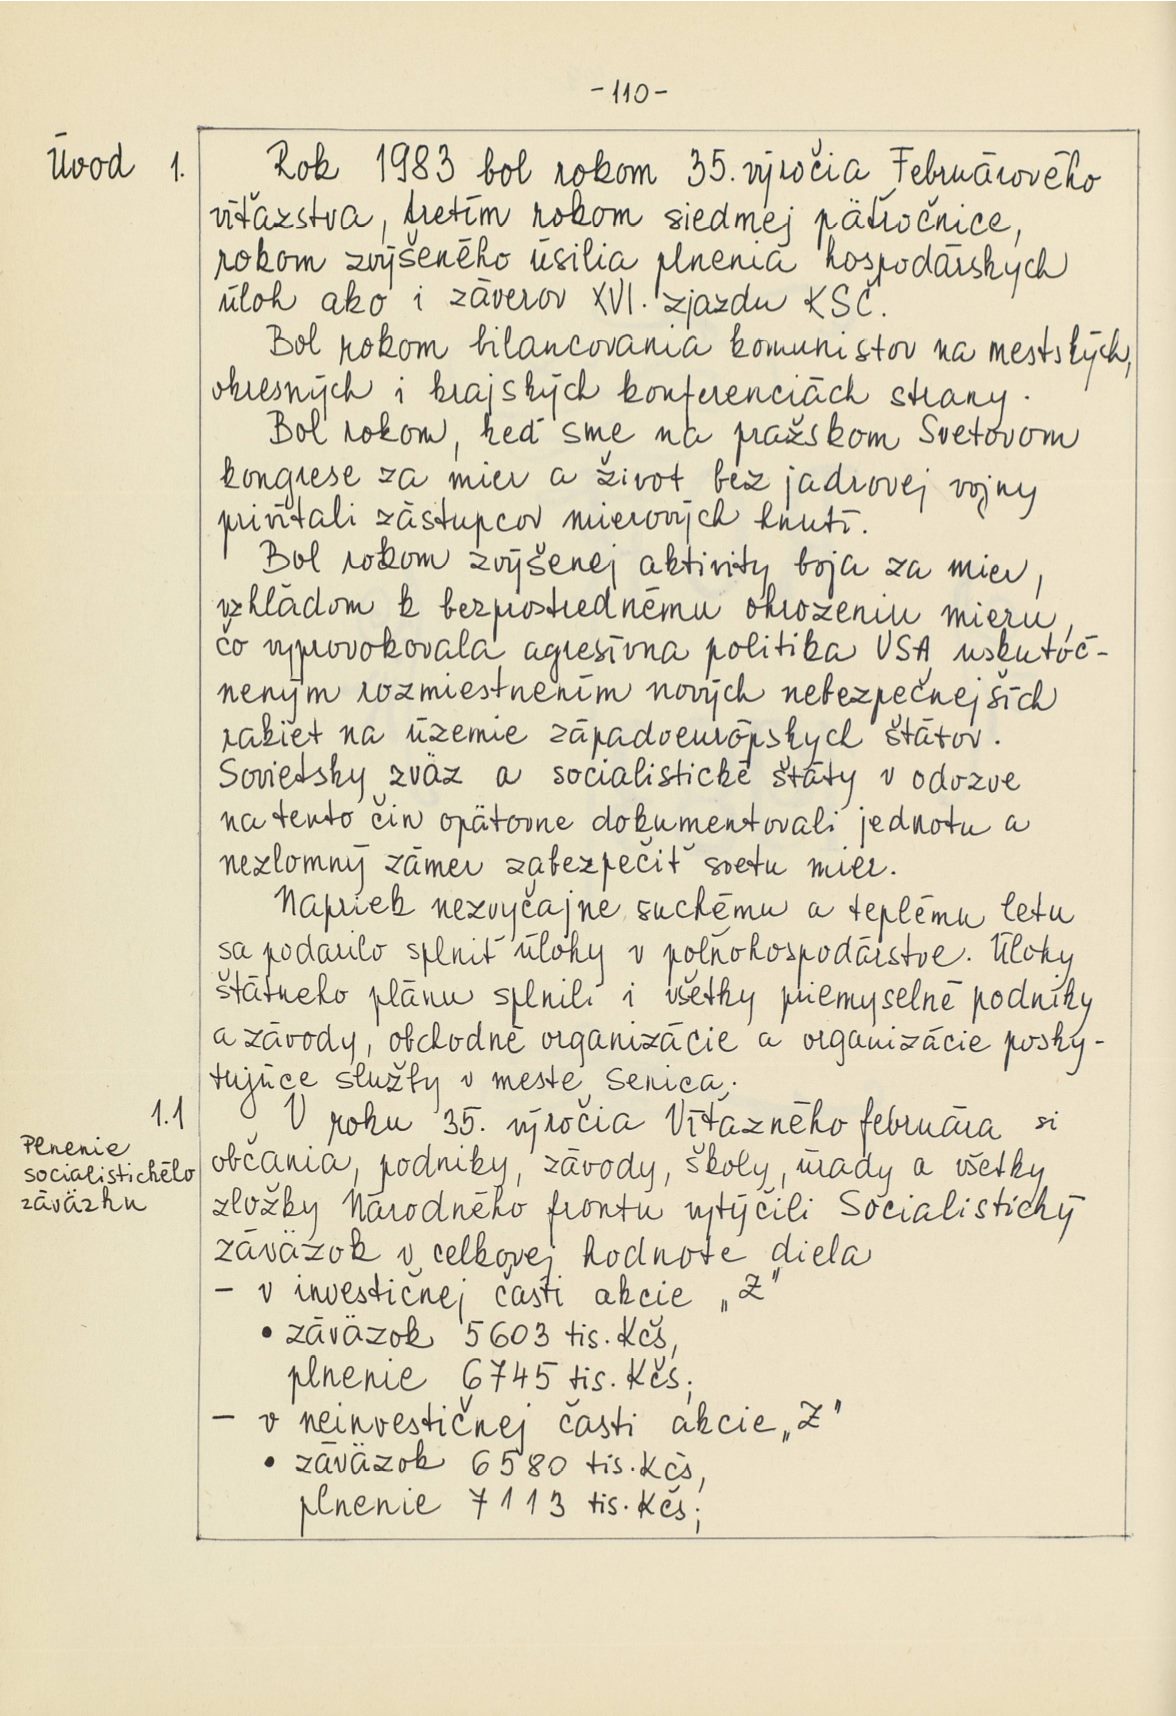 -110-
Úvod 1.
Rok 1983 bol rokom 35. výročia Februárového
víťazstva, tretím rokom siedmej päťročnice,
rokom zvýšeného úsilia plnenia hospodárskych
úloh ako i záverov XVI. zjazdu KSČ.
Bol rokom bilancovania komunistov na mestských,
okresných i krajských konferenciách strany.
Bol rokom, keď sme na pražskom Svetovom
kongrese za mier a život bez jadrovej vojny
privítali zástupcov mierových hnutí.
Bol rokom zvýšenej aktivity boja za mier,
vzhľadom k bezprostrednému ohrozeniu mieru,
čo vyprovokovala agresívna politika USA uskutoč-
neným rozmiestnením nových nebezpečnejších
rakiet na územie západoeurópskych štátov.
Sovietsky zväz a socialistické štáty v odozve
na tento čin opätovne dokumentovali jednotu a
nezlomný zámer zabezpečiť svetu mier.
Napriek nezvyčajne suchému a teplému letu
sa podarilo splniť úlohy v poľnohospodárstve. Úlohy
štátneho plánu splnili i všetky priemyselné podniky
a závody, obchodné organizácie a organizácie posky-
tujúce služby v meste Senica.
1.1
Plnenie
socialistického
záväzku
V roku 35. výročia Víťazného februára si
občania, podniky, závody, školy, úrady a všetky
zložky Národného frontu vytýčili Socialistický
záväzok v celkovej hodnote diela
– v investičnej časti akcie „Z"
• záväzok 5603 tis. Kčs,
plnenie 6745 tis. Kčs;
– v neinvestičnej časti akcie „Z"
• záväzok 6580 tis. Kčs,
plnenie 7113 tis. Kčs;